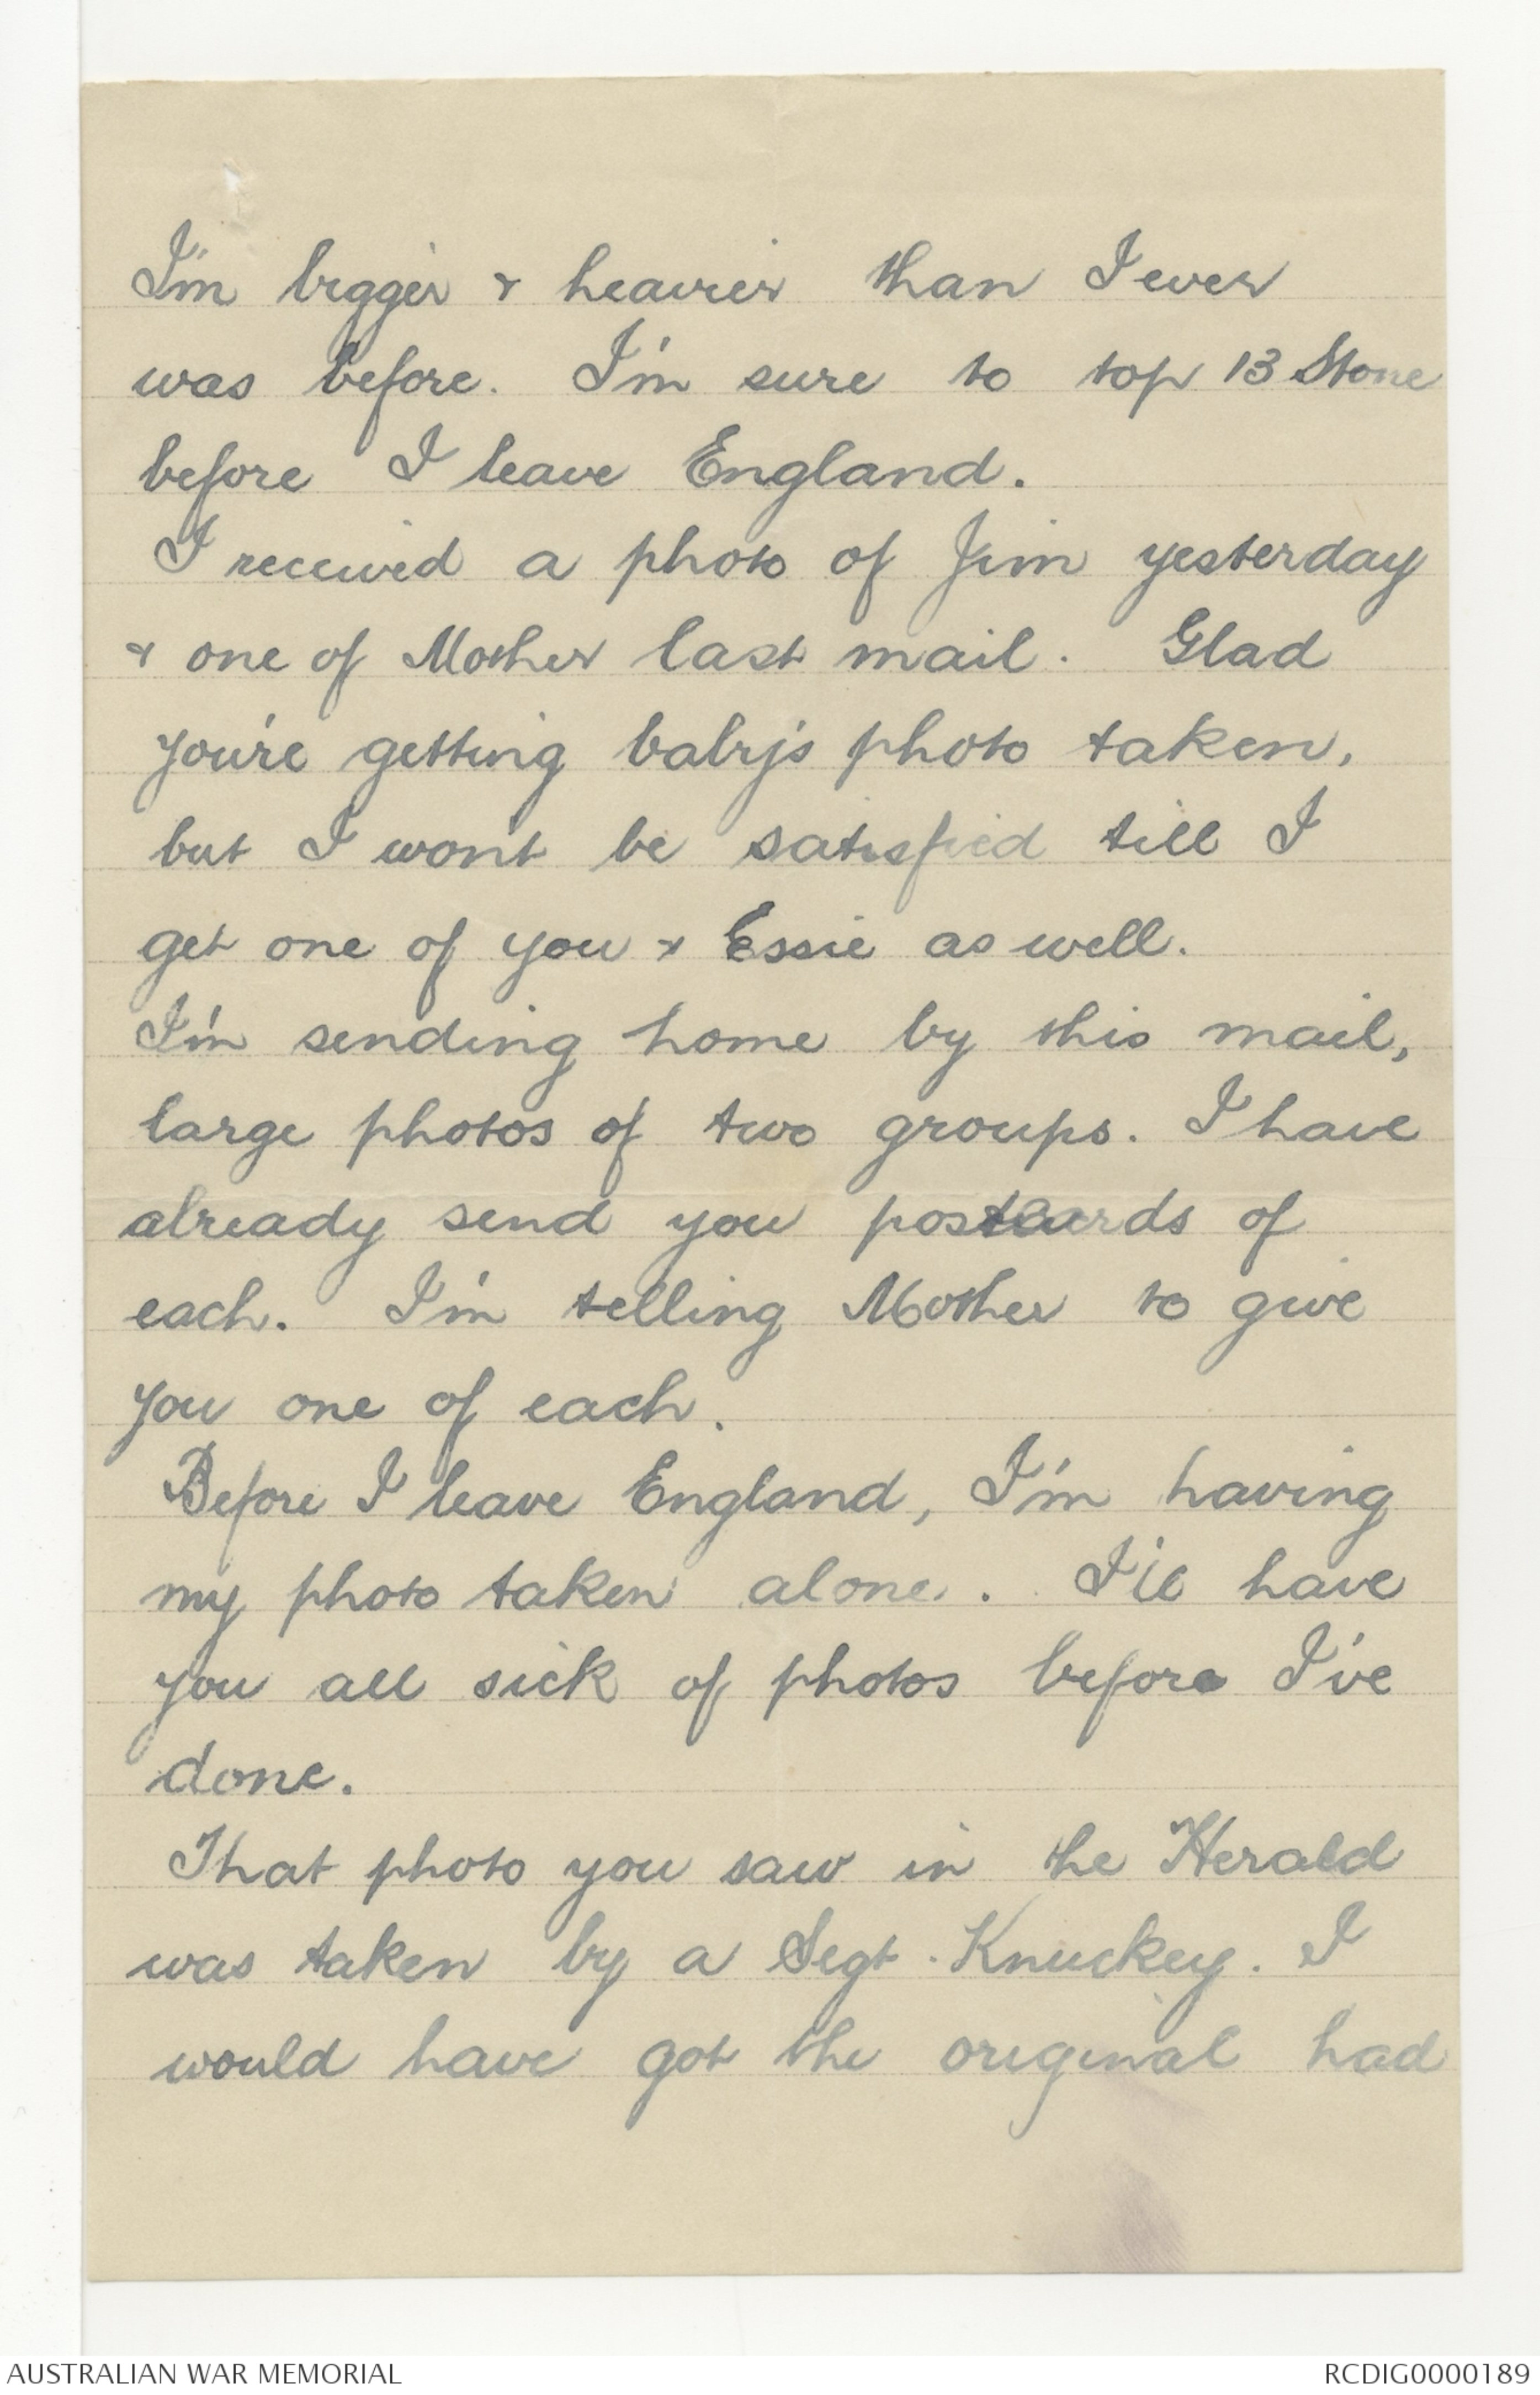 I'm bigger & heavier than I ever
was before. I'm sure to top 13 Stone
before I leave England.
I received a photo of Jim yesterday
& one of Mother last mail. Glad
you're getting baby's photo taken,
but I won't be satisfied till I
get one of you & Essie as well.
I'm sending home by this mail,
large photos of two groups. I have
already send you postcards of
each. I'm telling Mother to give
you one of each.
Before I leave England, I'm having
my photo taken alone. I'll have
you all sick of photos before I've
done.
That photo you saw in the Herald
was taken by a Segt. Knuckey. I
would have got the original had
AUSTRALIAN WAR MEMORIAL
RCDIG0000189